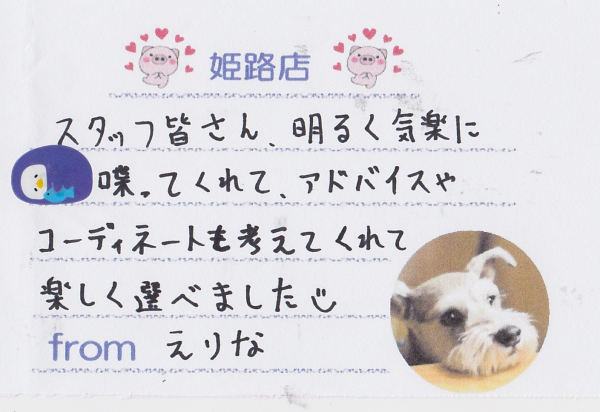 姫路店
スタッフ皆さん、明るく気楽に
喋ってくれて、アドバイスや
コーディネートも考えてくれて
楽しく選べました
from えりな